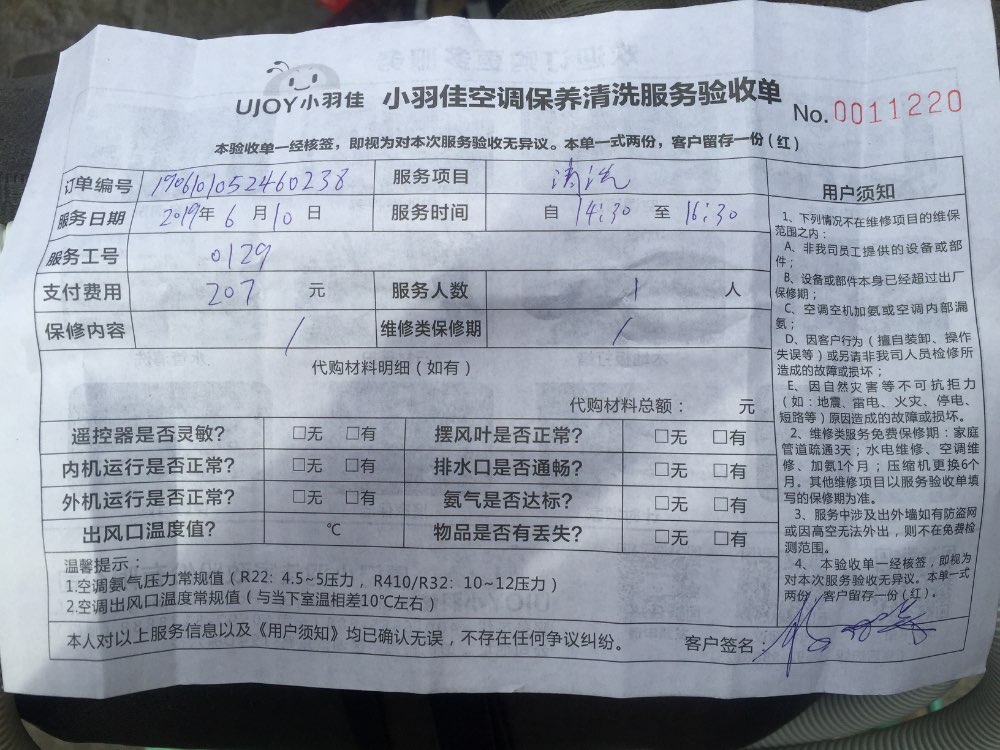 UJOY小羽佳 小羽佳空调保养清洗服务验收单
No. 0011220
本验收单一经核签，即视为对本次服务验收无异议。本单一式两份，客户留存一份(红)
订单编号 1906101052460238 服务项目 清洗
服务日期 2019年 6 月 10 日 服务时间 自 14:30 至 16:30
服务工号 0129
支付费用 207 元 服务人数 1 人
保修内容 / 维修类保修期 /
代购材料明细（如有）
代购材料总额： 元
遥控器是否灵敏? □无 □有 摆风叶是否正常? □无 □有
内机运行是否正常? □无 □有 排水口是否通畅? □无 □有
外机运行是否正常? □无 □有 氨气是否达标? □无 □有
出风口温度值? ℃ 物品是否有丢失? □无 □有
温馨提示：
1.空调氨气压力常规值（R22：4.5~5压力，R410/R32：10~12压力）
2.空调出风口温度常规值（与当下室温相差10℃左右）
本人对以上服务信息以及《用户须知》均已确认无误，不存在任何争议纠纷。 客户签名：
用户须知
1、下列情况不在维修项目的维保
范围之内：
A、非我司员工提供的设备或部
件；
B、设备或部件本身已经超过出厂
保修期；
C、空调空机加氨或空调内部漏
氨；
D、因客户行为（擅自装卸、操作
失误等）或另请非我司人员检修所
造成的故障或损坏；
E、因自然灾害等不可抗拒力
（如：地震、雷电、火灾、停电、
短路等）原因造成的故障或损坏。
2、维修类服务免费保修期：家庭
管道疏通3天；水电维修、空调维
修、加氨1个月；压缩机更换6个
月。其他维修项目以服务验收单填
写的保修期为准。
3、服务中涉及出外墙如有防盗网
或因高空无法外出，则不在免费检
测范围。
4、本验收单一经核签，即视为
对本次服务验收无异议。本单一式
两份，客户留存一份(红)。